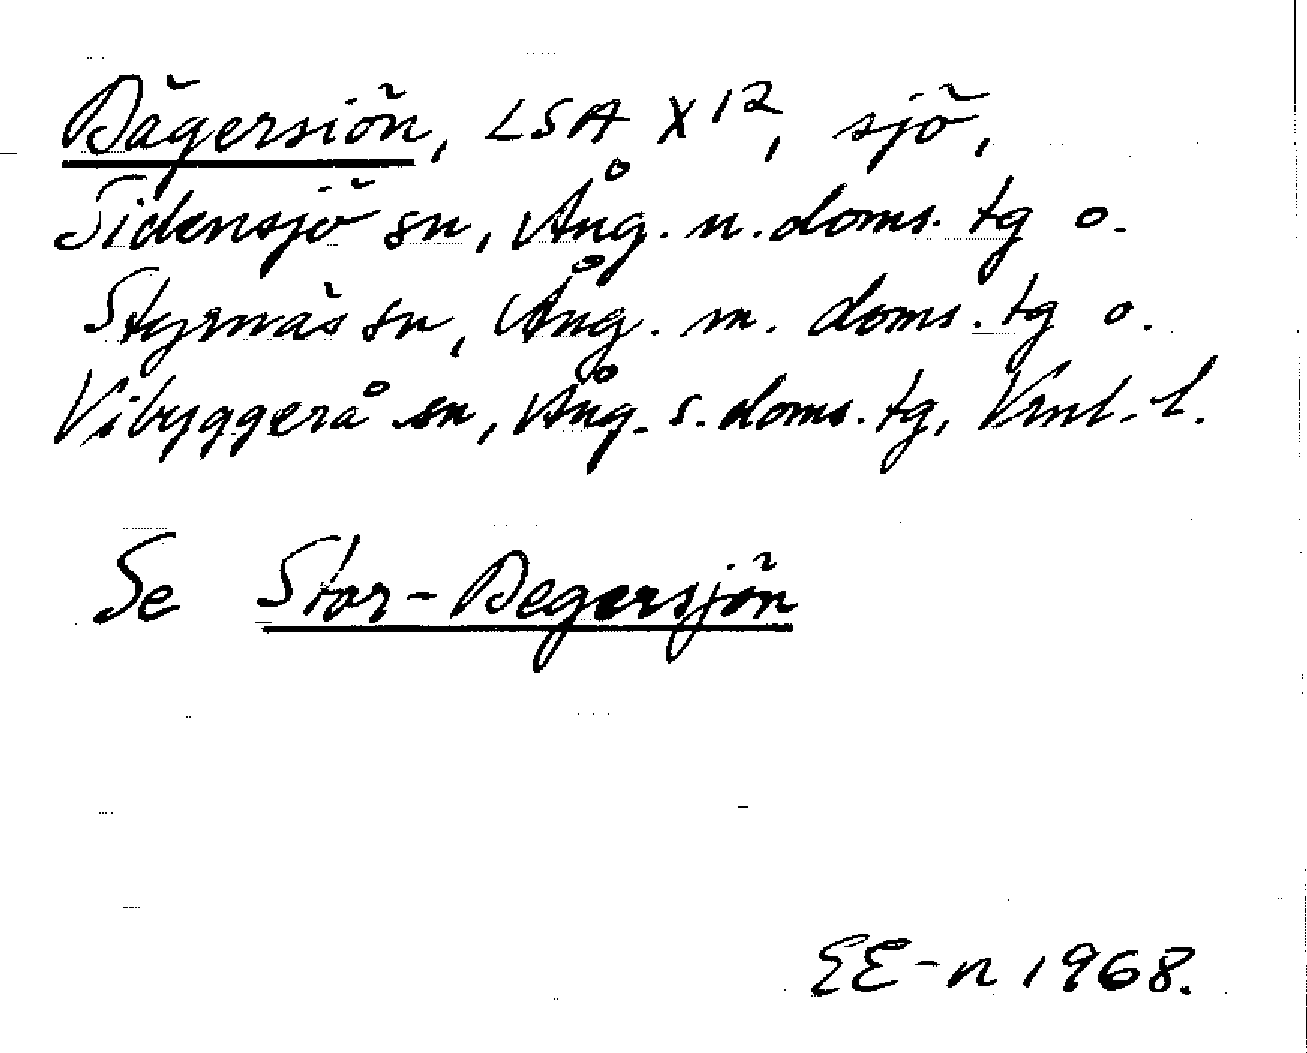 Dägersiön, LSA X 12, sjö,
Sidensjö sn, Ång. n. doms. tg o.
Styrnäs sn, Ång. m. doms. tg o.
Vibyggerå sn, Ång. s. doms. tg, Vnl. l.
Se Stor-Degersjön
EE-n 1968.